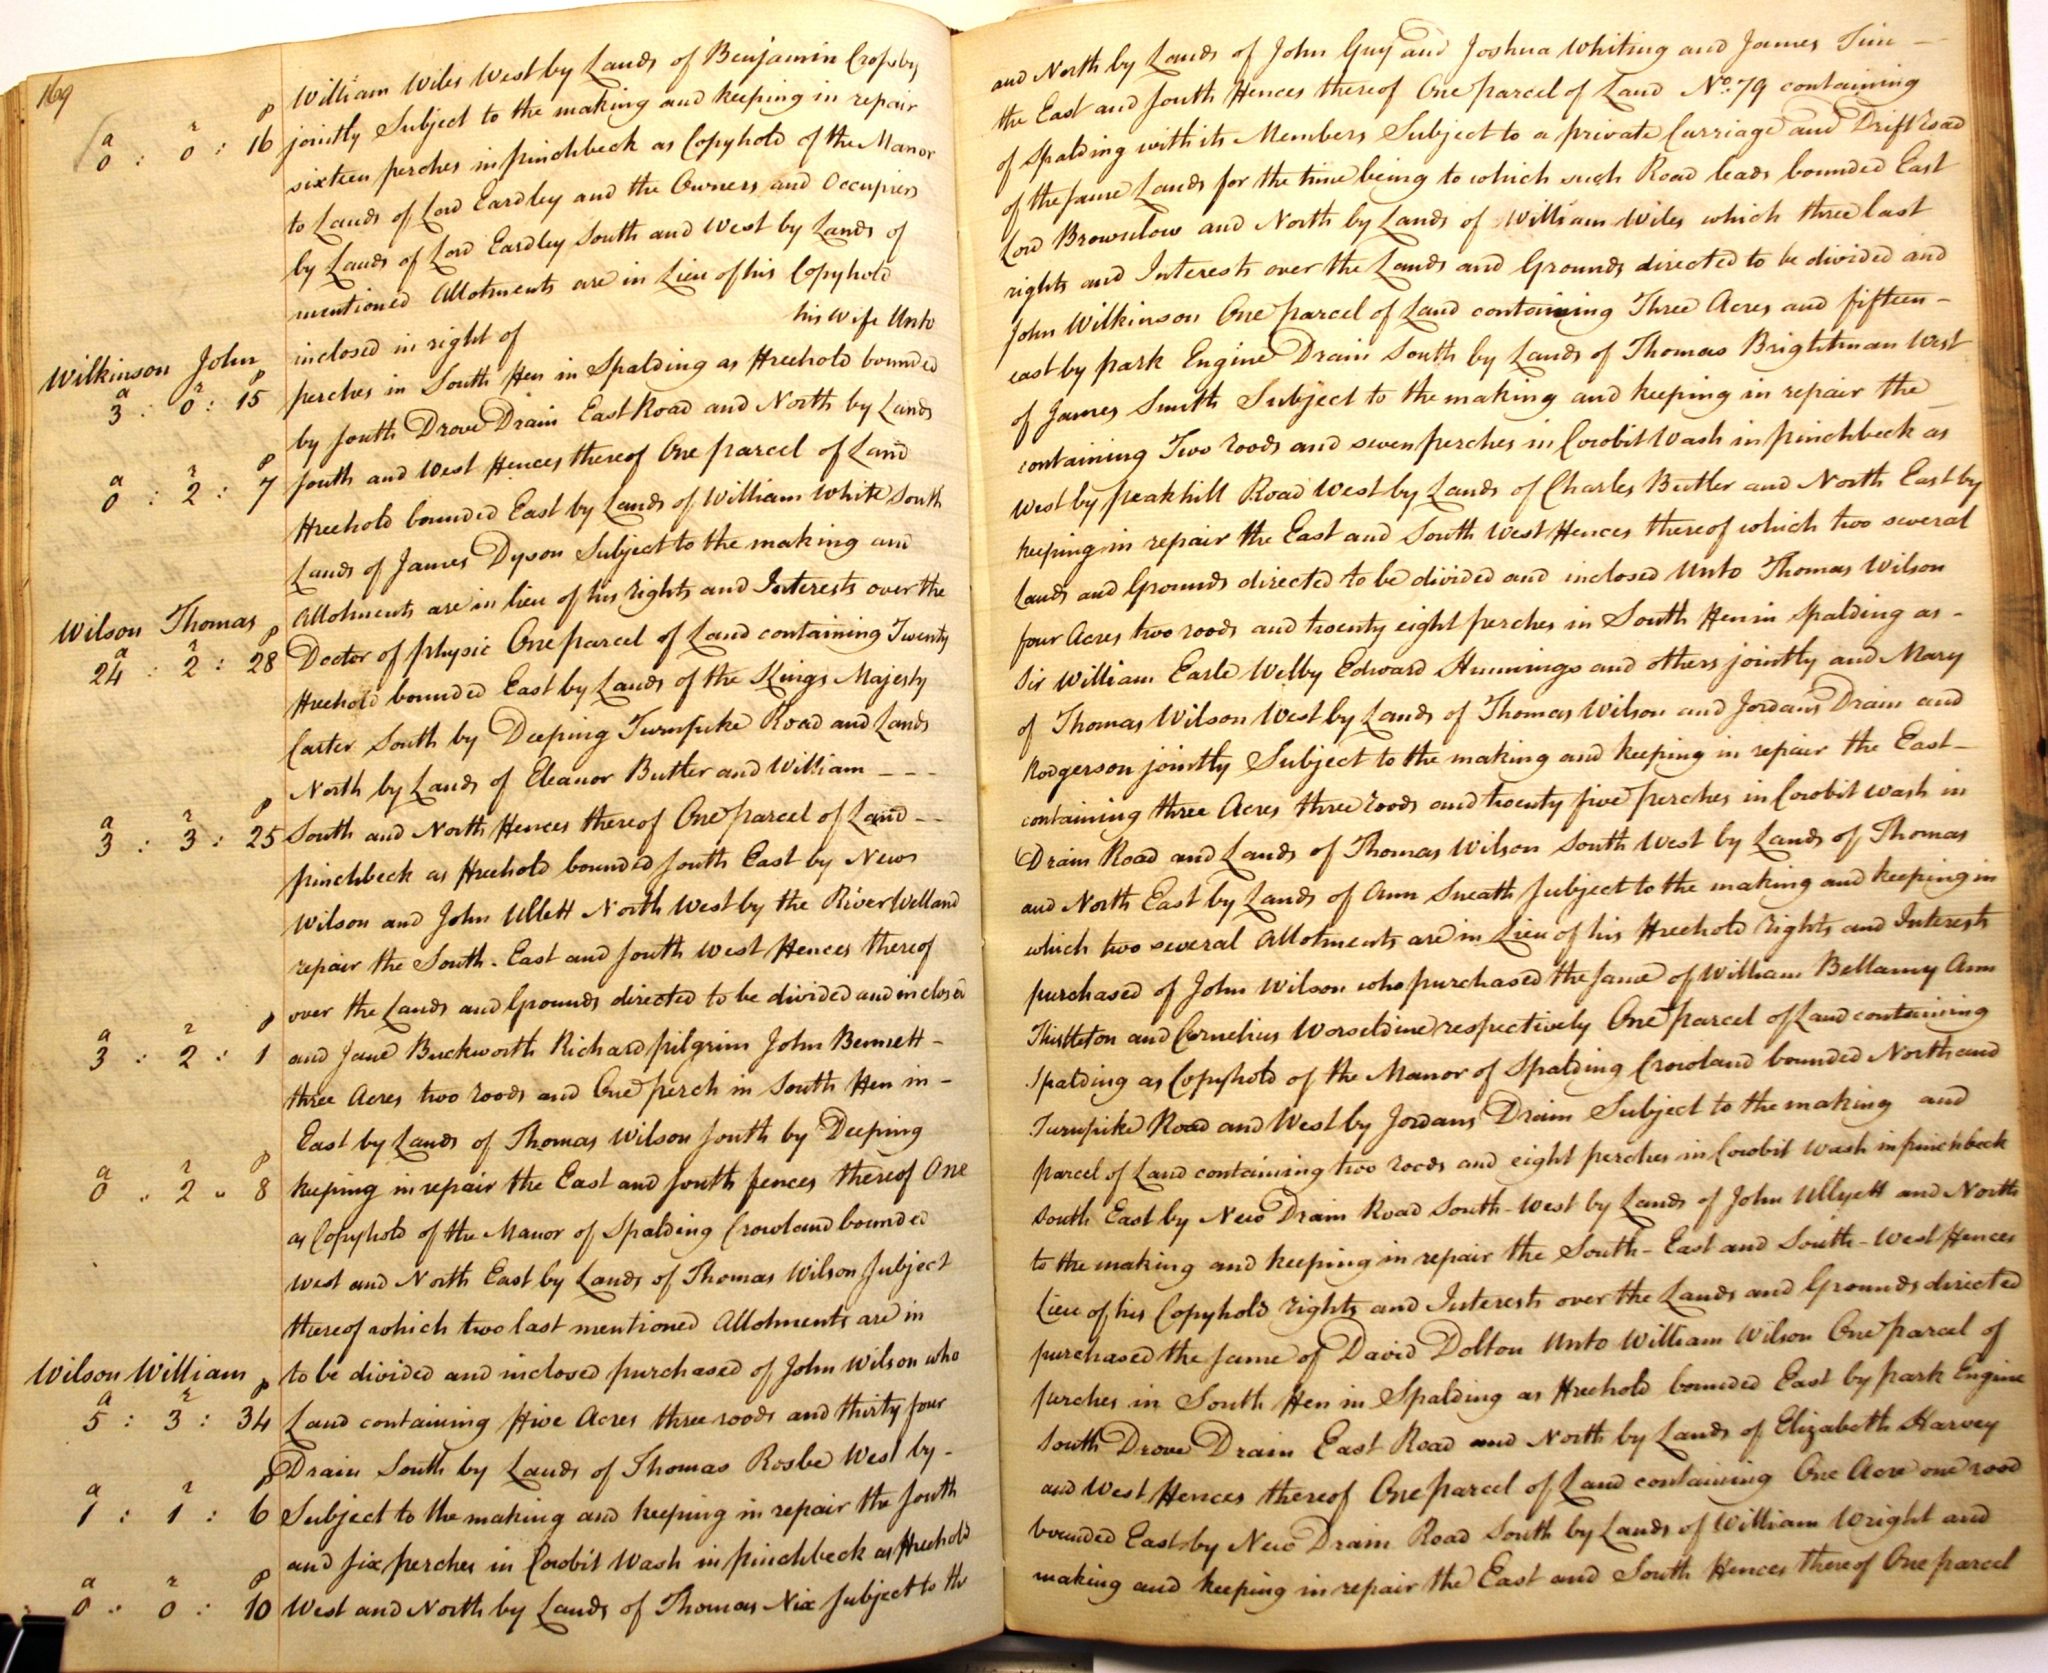 169
William Wiles West by Lands of Benjamin Cropsby
a r p
0 : 0 : 16 jointly Subject to the making and keeping in repair
sixteen perches in pinchbeck as Copyhold of the Manor
to Lands of Lord Eardley and the Owners and Occupiers
by Lands of Lord Eardley South and West by Lands of
mentioned Allotments are in Lieu of his Copyhold
inclosed in right of his Wife Unto
Wilkinson John
a r p
3 : 0 : 15 perches in South Fen in Spalding as Freehold bounded
by South Drove Drain East Road and North by Lands
a r p
0 : 2 : 7 South and West Fences thereof One parcel of Land
Freehold bounded East by Lands of William White South
Lands of James Dyson Subject to the making and
Allotments are in lieu of his rights and Interests over the
Wilson Thomas
a r p
24 : 2 : 28 Doctor of physic One parcel of Land containing Twenty
Freehold bounded East by Lands of the Kings Majesty
Carter South by Deeping Turnpike Road and Lands
North by Lands of Eleanor Butler and William - - -
a r p
3 : 3 : 25 South and North Fences thereof One parcel of Land - -
pinchbeck as Freehold bounded South East by New
Wilson and John Ullett North West by the River Welland
repair the South-East and South West Fences thereof
over the Lands and Grounds directed to be divided and inclosed
a r p
3 : 2 : 1 and Jane Buckworth Richard pilgrim John Bennett -
three Acres two roods and One perch in South Fen in -
East by Lands of Thomas Wilson South by Deeping
a r p
0 : 2 " 8 keeping in repair the East and South fences thereof One
as Copyhold of the Manor of Spalding Crowland bounded
West and North East by Lands of Thomas Wilson Subject
thereof which two last mentioned Allotments are in
Wilson William to be divided and inclosed purchased of John Wilson who
a r p
5 : 3 : 34 Land containing Five Acres three roods and thirty four
Drain South by Lands of Thomas Rosbe West by -
a r p
1 : 1 : 6 Subject to the making and keeping in repair the South
and six perches in Cowbit Wash in pinchbeck as Freehold
a r p
0 : 0 : 10 West and North by Lands of Thomas Nix Subject to the
and North by Lands of John Guy and Joshua Whiting and James Tim -
the East and South Fences thereof One parcel of Land No. 79 containing
of Spalding with its Members Subject to a private Carriage and Drift road
of the same Lands for the time being to which such Road leads bounded East
Lord Brownlow and North by Lands of William Wiles which three last
rights and Interests over the Lands and Grounds directed to be divided and
John Wilkinson One parcel of Land containing Three Acres and fifteen -
east by park Engine Drain South by Lands of Thomas Brightman West
of James Smith Subject to the making and keeping in repair the
containing Two roods and seven perches in Cowbit Wash in pinchbeck as
West by peakhill Road West by Lands of Charles Butler and North East by
keeping in repair the East and South West Fences thereof which two several
Lands and Grounds directed to be divided and inclosed Unto Thomas Wilson
four Acres two roods and twenty eight perches in South Fen in Spalding as -
Sir William Earle Welby Edward Hunnings and others jointly and Mary
of Thomas Wilson West by Lands of Thomas Wilson and Jordans Drain and
Rodgerson jointly Subject to the making and keeping in repair the East -
containing three Acres three roods and twenty five perches in Cowbit Wash in
Drain Road and Lands of Thomas Wilson South West by Lands of Thomas
and North East by Lands of Ann Sneath Subject to the making and keeping in
which two several Allotments are in Lieu of his Freehold rights and Interests
purchased of John Wilson who purchased the same of William Bellamy Ann
Thistleton and Cornelius Worseldine respectively One parcel of Land containing
Spalding as Copyhold of the Manor of Spalding Crowland bounded North and
Turnpike Road and West by Jordans Drain Subject to the making and
parcel of Land containing two roods and eight perches in Cowbit Wash in pinchbeck
South East by New Drain Road South-West by Lands of John Ullyett and North
to the making and keeping in repair the South-East and South-West Fences
Lieu of his Copyhold rights and Interests over the Lands and Grounds directed
purchased the same of David Dolton Unto William Wilson One parcel of
perches in South Fen in Spalding as Freehold bounded East by park Engine
South Drove Drain East Road and North by Lands of Elizabeth Harvey
and West Fences thereof One parcel of Land containing One Acre one rood
bounded East by New Drain Road South by Lands of William Wright and
making and keeping in repair the East and South Fences thereof One parcel